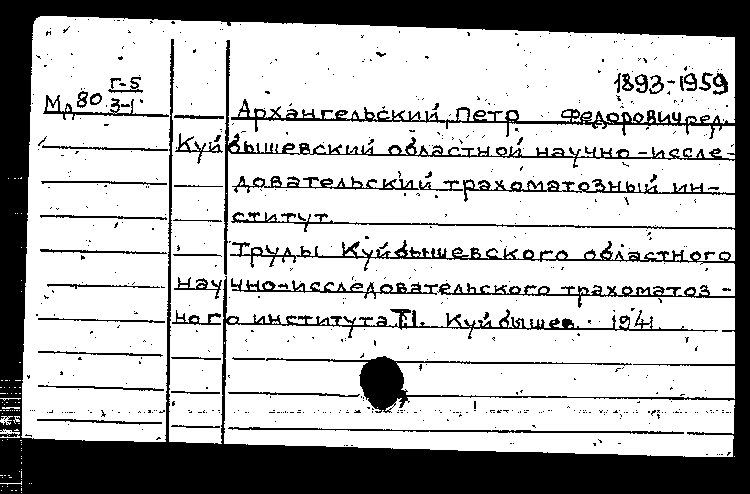 1893-1959
Мд80 Г-5
3-1
Архангельский, Петр Федорович, ред.
Куйбышевский областной научно-иссле-
довательский трахоматозный ин-
ститут.
Труды Куйбышевского областного
научно-исследовательского трахоматоз-
ного института Т.I. Куйбышев. 1941.